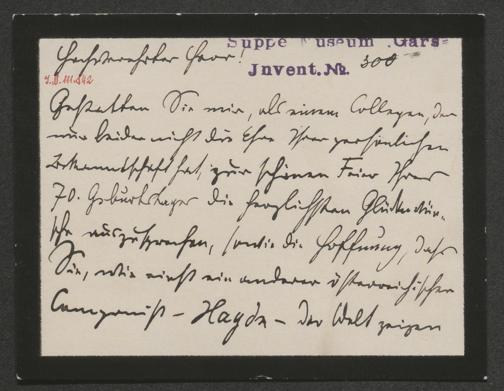 Suppe Museum Gars
Hochverehrter Herr!
Jnvent.№ 300
Gestatten Sie mir, als einem Collegen, der
nur leider nicht die Ehre Ihrer persönlichen
Bekanntschaft hat, zur schönen Feier Ihres
70. Geburtstages die herzlichsten Glückwün-
sche auszusprechen, sowie die Hoffnung, daß
Sie, wie einst ein anderer österreichischer
Componist – Haydn – der Welt zeigen